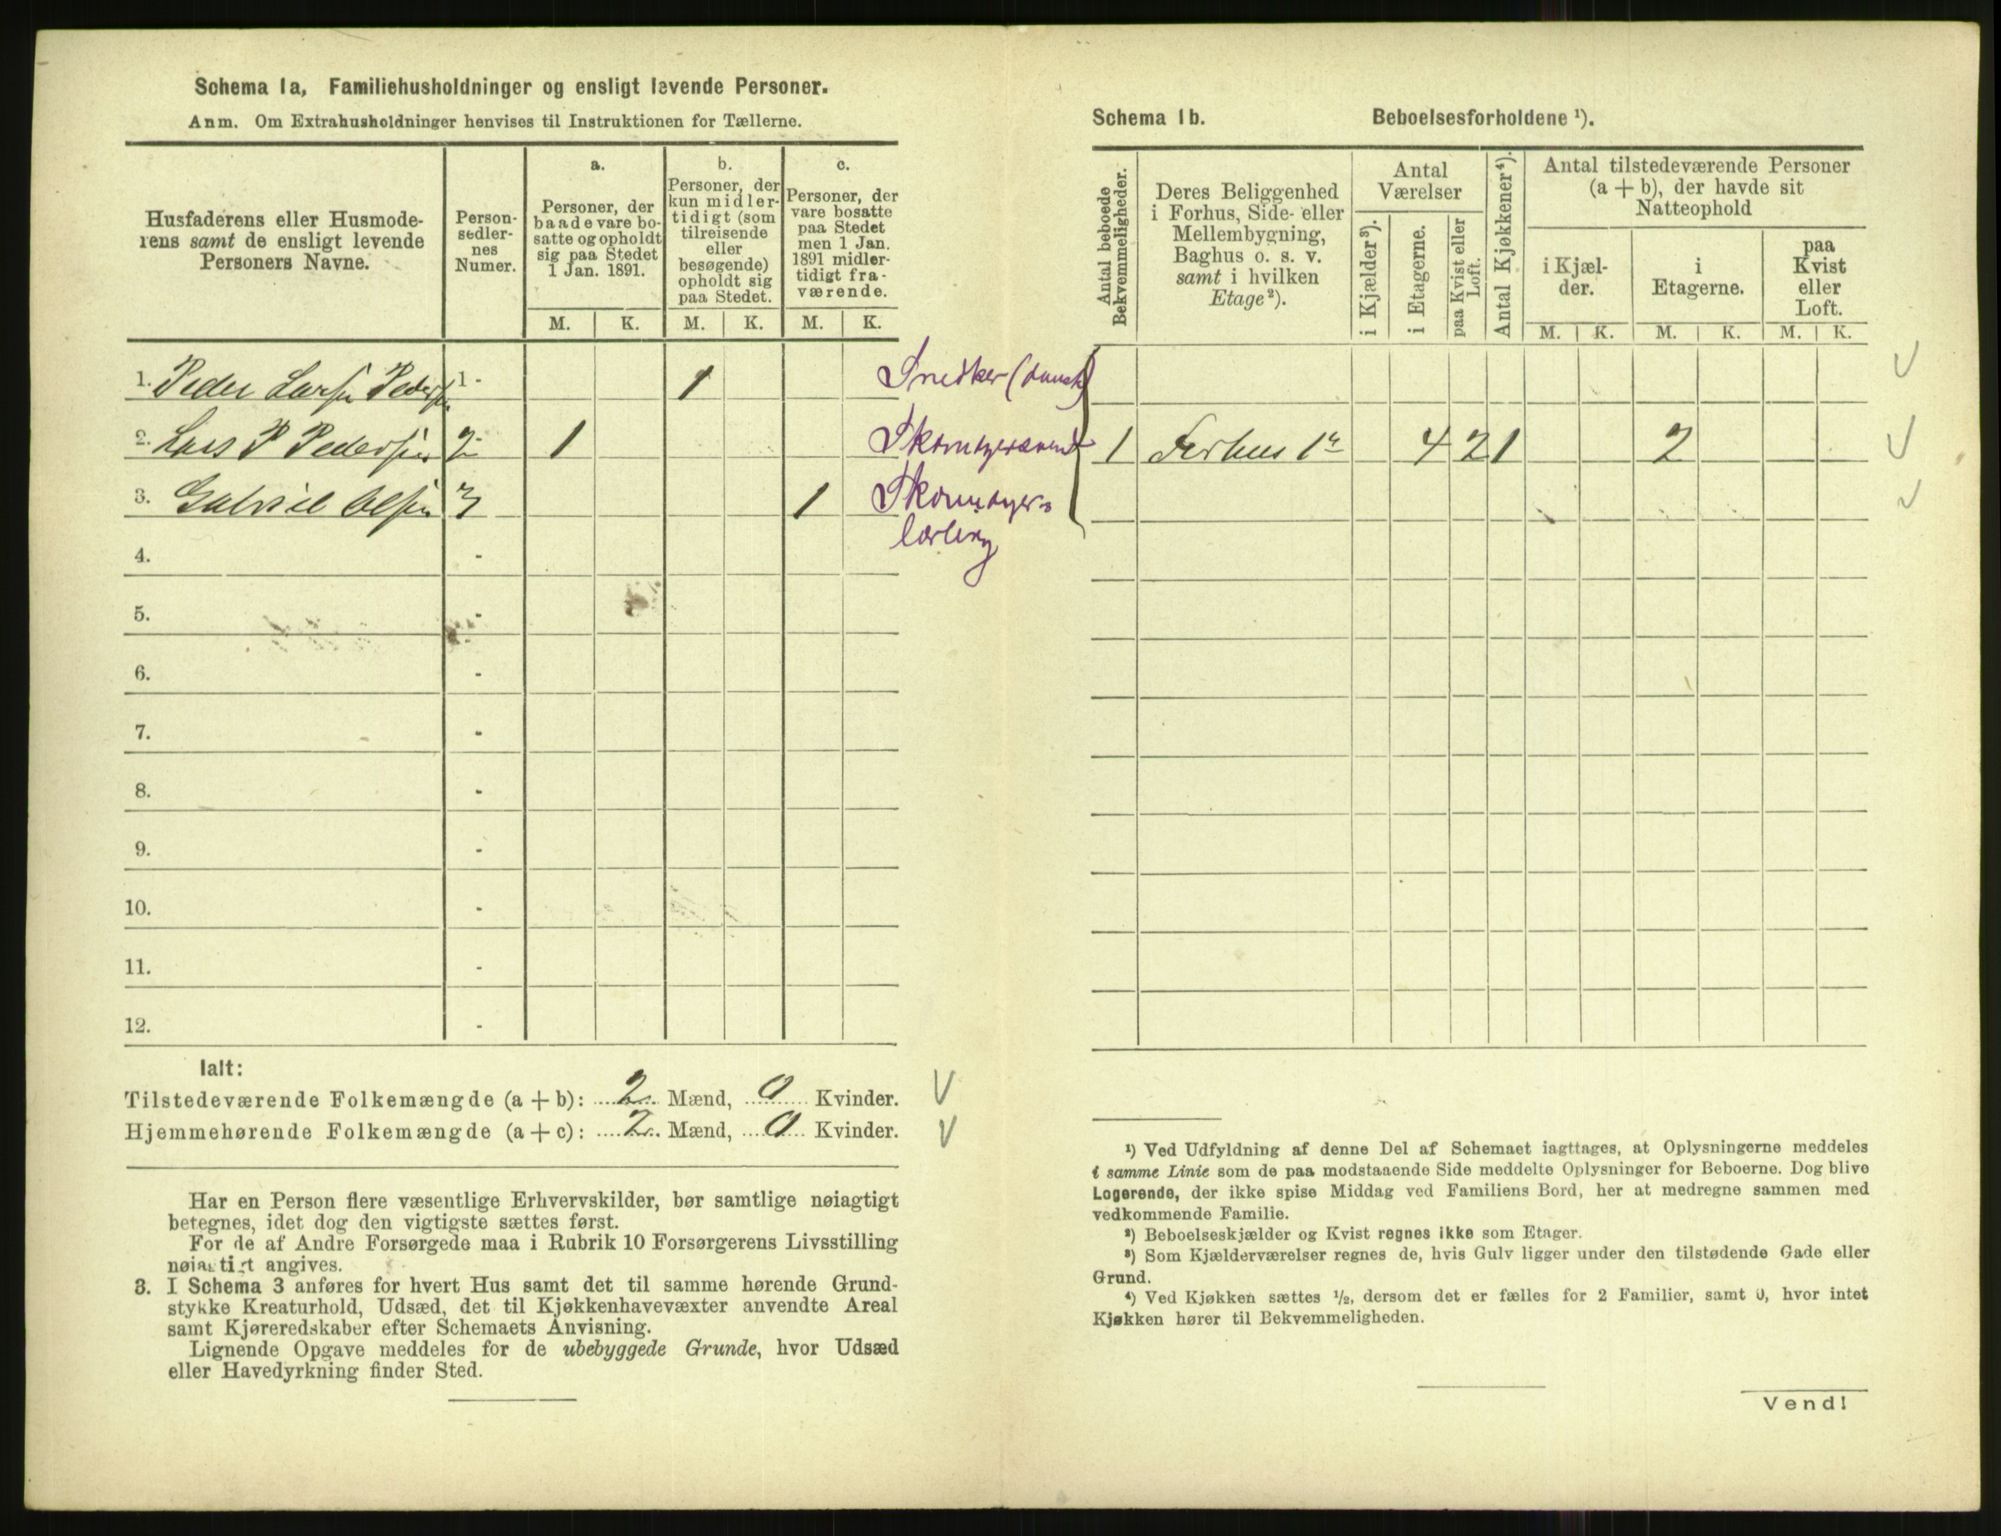 Schema 1a, Familiehusholdninger og ensligt levende Personer.
Anm. Om Extrahusholdninger henvises til Instruktionen for Tællerne.
Husfaderens eller Husmode-
rens samt de ensligt levende
Personers Navne.
Person-
sedler-
nes
Numer.
a.
Personer, der
baade vare bo-
satte og opholdt
sig paa Stedet
1 Jan. 1891.
b.
Personer, der
kun midler-
tidigt (som
tilreisende
eller
besøgende)
opholdt sig
paa Stedet.
c.
Personer, der
vare bosatte
paa Stedet
men 1 Jan.
1891 midler-
tidigt fra-
værende.
M. K. M. K. M. K.
1. Peder Larsen Pedersen 1 - 1 Snedker (dansk)
2. Lars P Pedersen 2 - 1 Skomagersvend
3. Gabriel Olsen 3 1 Skomager-
lærling
4. -
5. -
6. -
7. -
8. -
9. -
10. -
11. -
12. -
Ialt:
Tilstedeværende Folkemængde (a + b): 2 Mænd, 0 Kvinder.
Hjemmehørende Folkemængde (a + c): 2 Mænd, 0 Kvinder.
Har en Person flere væsentlige Erhvervskilder, bør samtlige nøiagtigt
betegnes, idet dog den vigtigste sættes først.
For de af Andre Forsørgede maa i Rubrik 10 Forsørgerens Livsstilling
nøiagtigt angives.
3. I Schema 3 anføres for hvert Hus samt det til samme hørende Grund-
stykke Kreaturhold, Udsæd, det til Kjøkkenhavevæxter anvendte Areal
samt Kjøreredskaber efter Schemaets Anvisning.
Lignende Opgave meddeles for de ubebyggede Grunde, hvor Udsæd
eller Havedyrkning finder Sted.
Schema 1b. Beboelsesforholdene ¹).
Antal beboede
Bekvemmeligheder.
Deres Beliggenhed
i Forhus, Side- eller
Mellembygning,
Baghus o. s. v.
samt i hvilken
Etage ²).
Antal
Værelser
i Kjælder ³).
i Etagerne.
paa Kvist eller
Loft.
Antal Kjøkkener ⁴).
Antal tilstedeværende Personer
(a + b), der havde sit
Natteophold
i Kjæl-
der.
i
Etagerne.
paa
Kvist
eller
Loft.
M. K. M. K. M. K.
1 Forhus 1ste 4 2 1 2
¹) Ved Udfyldning af denne Del af Schemaet iagttages, at Oplysningerne meddeles
i samme Linie som de paa modstaaende Side meddelte Oplysninger for Beboerne. Dog blive
Logerende, der ikke spise Middag ved Familiens Bord, her at medregne sammen med
vedkommende Familie.
²) Beboelseskjælder og Kvist regnes ikke som Etager.
³) Som Kjælderværelser regnes de, hvis Gulv ligger under den tilstødende Gade eller
Grund.
⁴) Ved Kjøkken sættes ½, dersom det er fælles for 2 Familier, samt 0, hvor intet
Kjøkken hører til Bekvemmeligheden.
Vend!